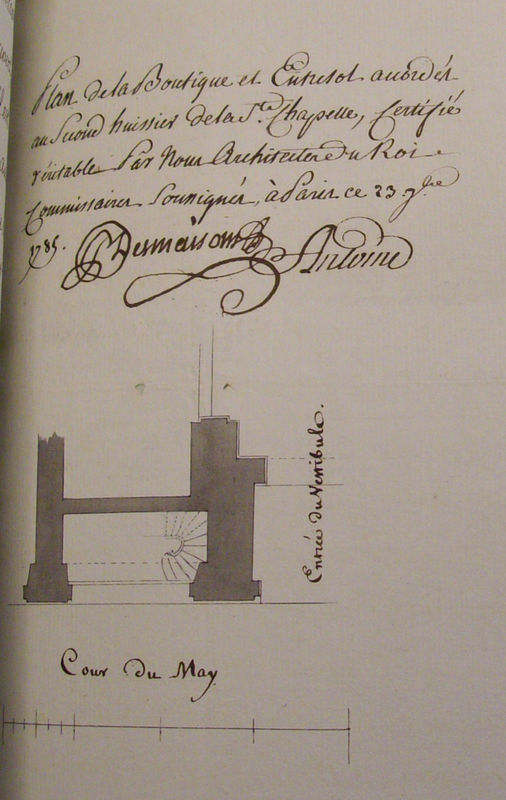 Plan de la Boutique et Entresol accordés
au Second huissier de la Ste. Chapelle, Certifié
véritable Par Nous Architectes du Roi
Commissaires Soussignés, à Paris ce 23 9bre
1785.
Desmaisons Antoine
Entrée du Vestibule.
Cour du May